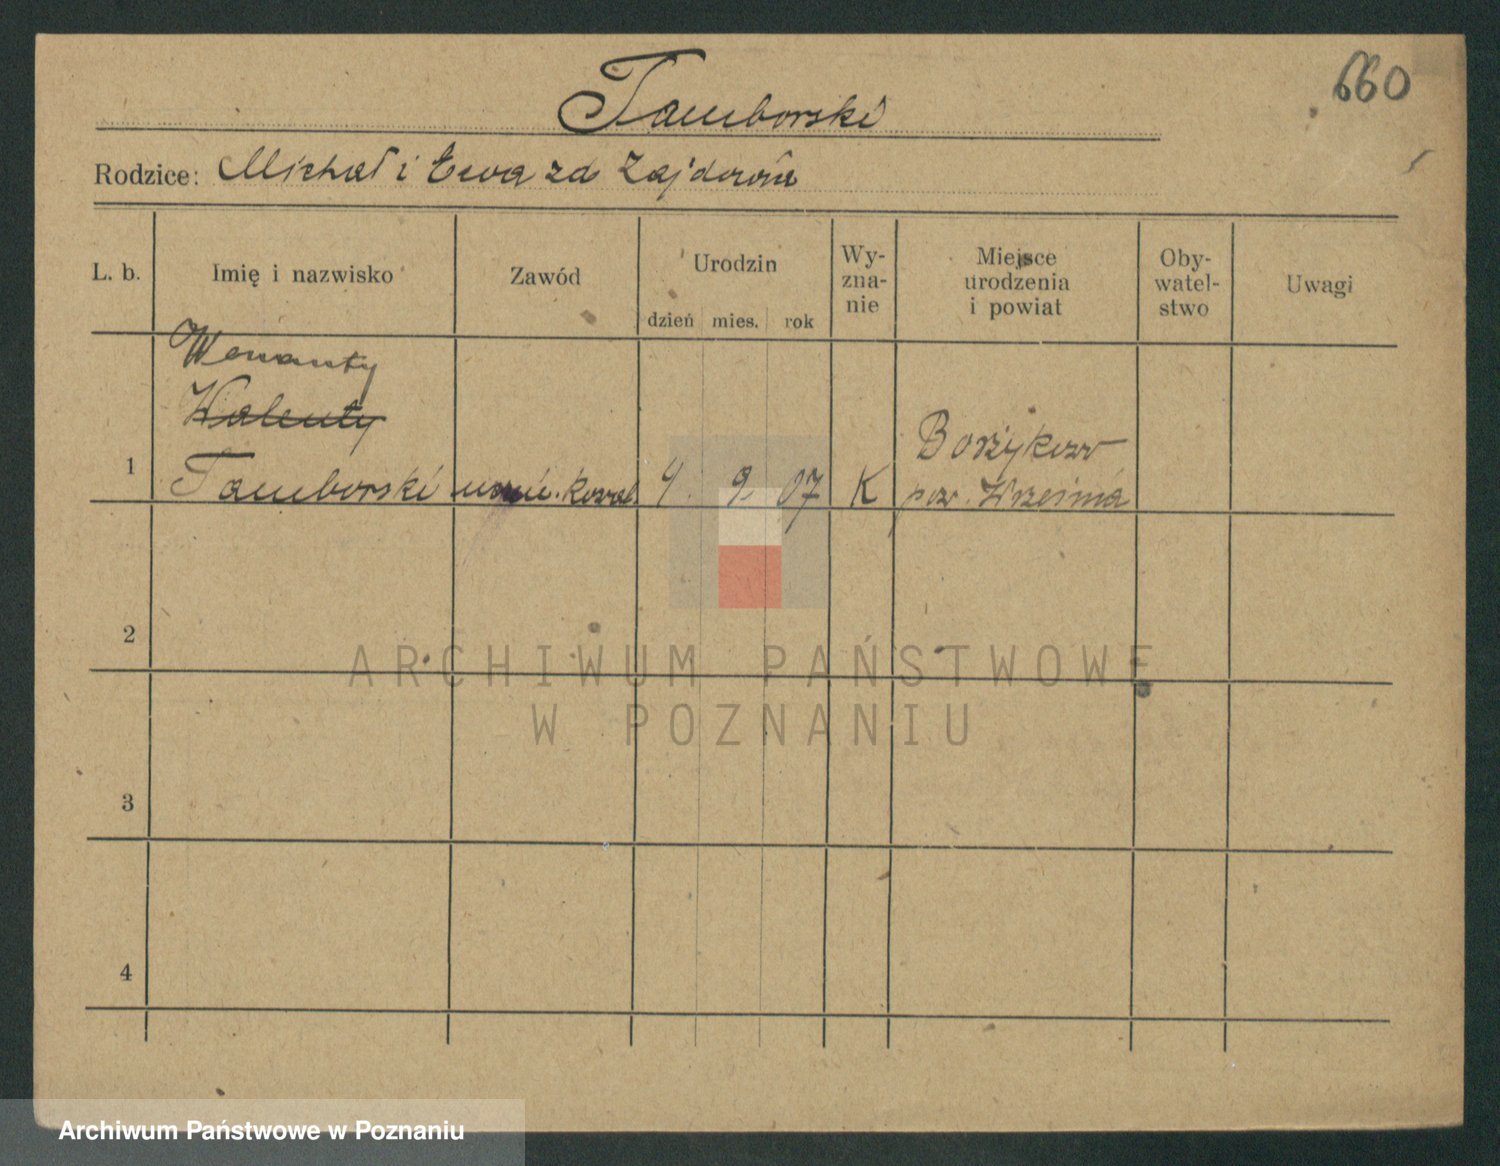 660
Tamborski
Rodzice: Michał i Ewa zd Zajdorów
L. b.
Imię i nazwisko
Zawód
Urodzin
dzień mies. rok
Wy-
zna-
nie
Miejsce
urodzenia
i powiat
Oby-
watel-
stwo
Uwagi
Wenanty
Walenty
1 Tamborski uczeń. kowal. 4. 9. 07 K
Borzykowo
pow. Września
2
3
4
ARCHIWUM PAŃSTWOWE
W POZNANIU
Archiwum Państwowe w Poznaniu